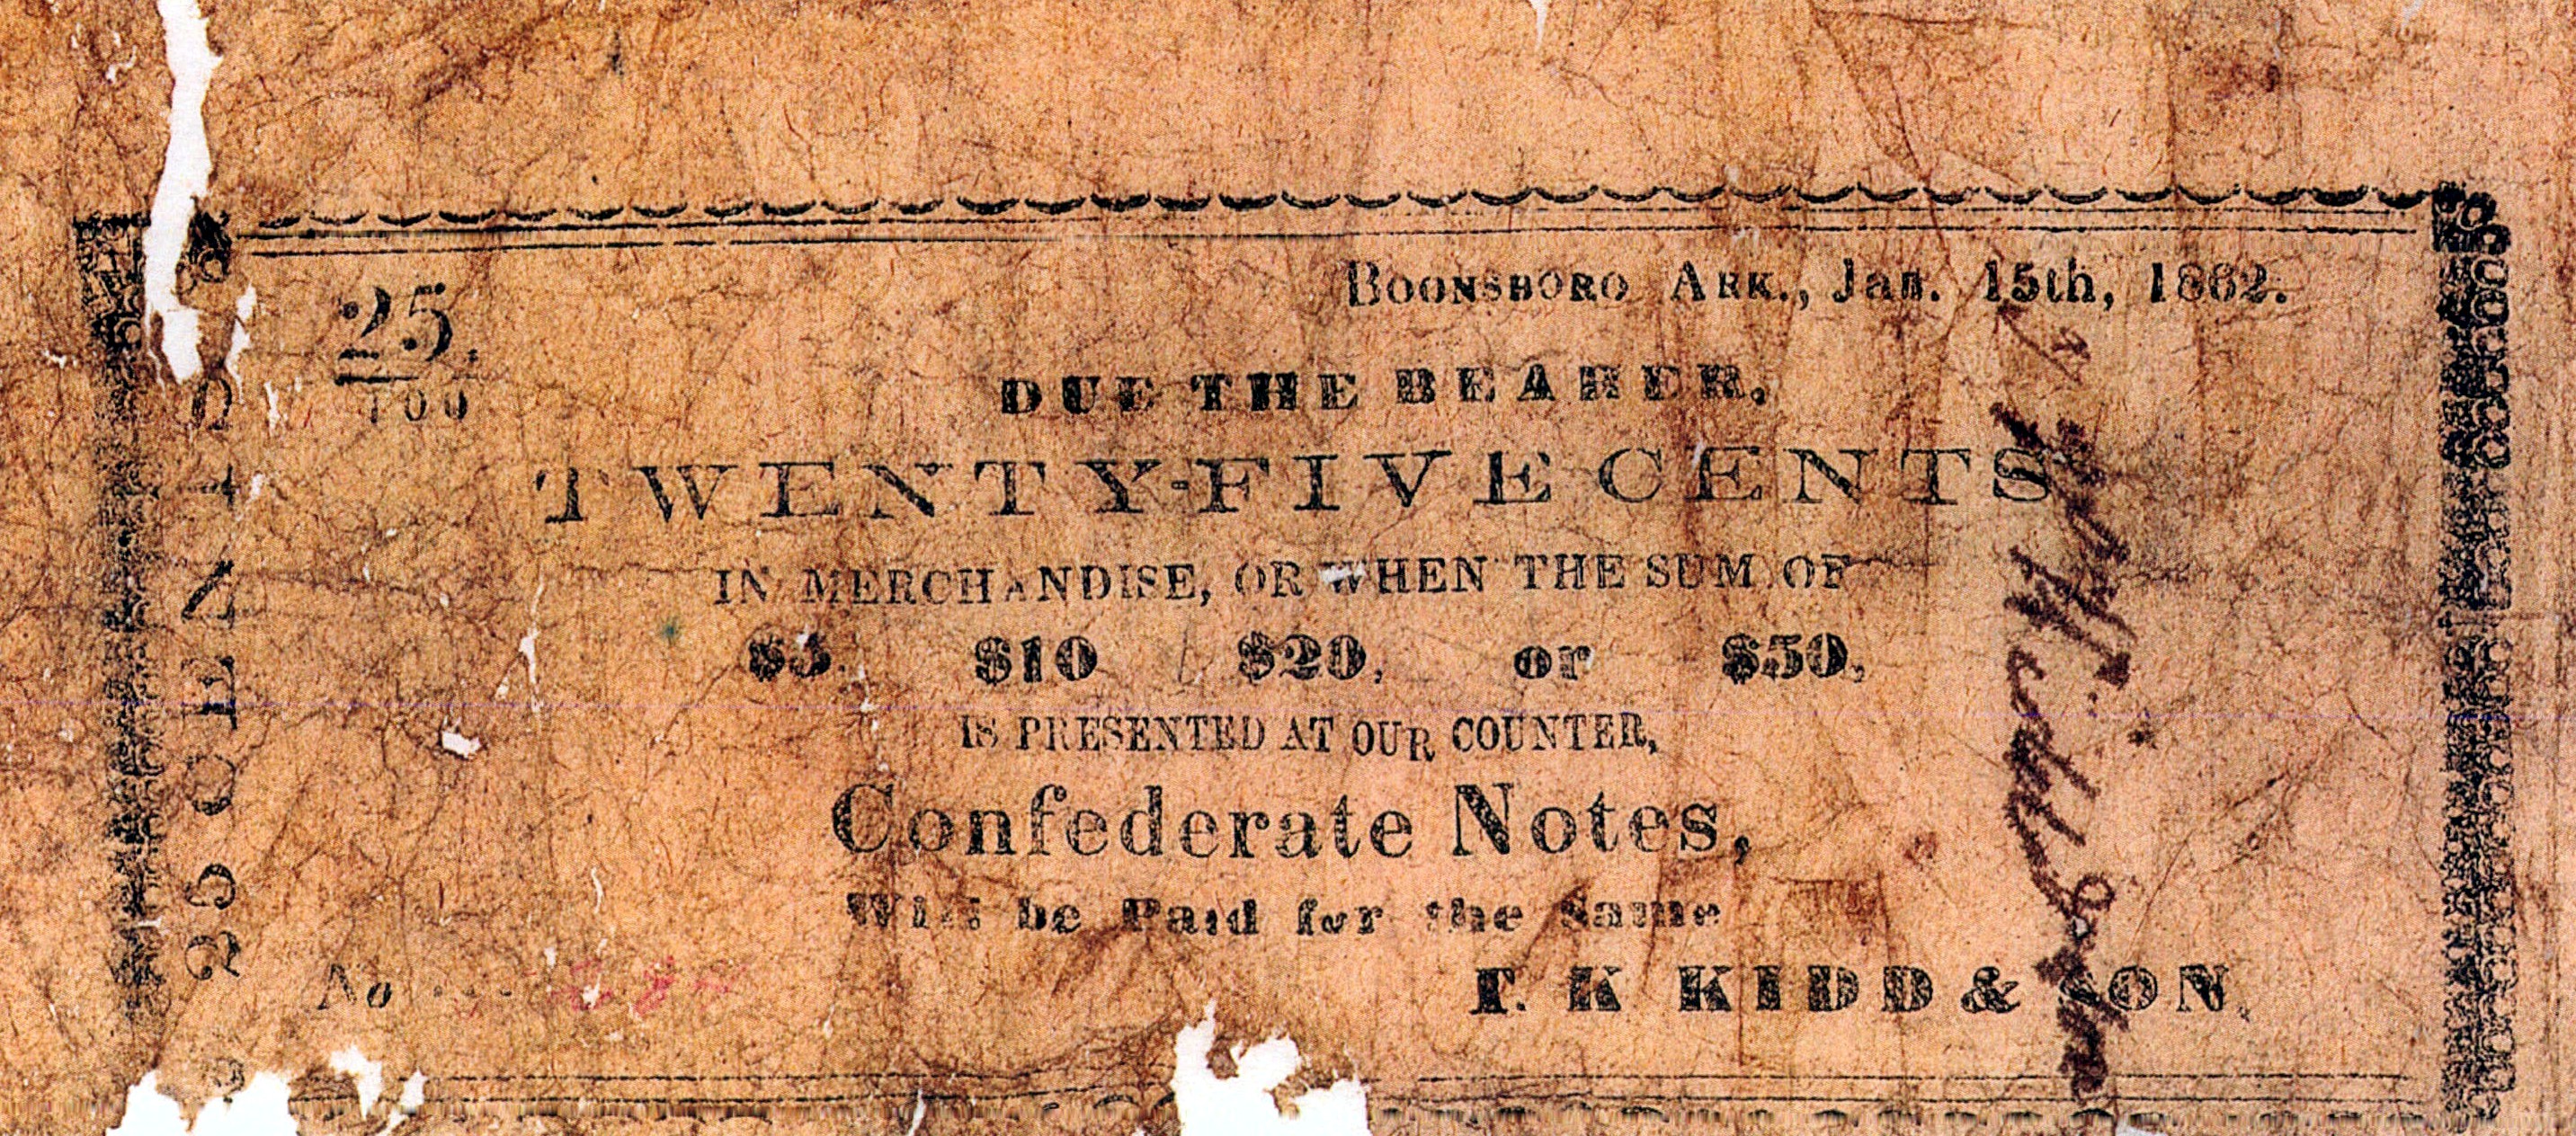 BOONSBORO ARK., Jan. 15th, 1862.
25.
100
DUE THE BEARER,
TWENTY-FIVE CENTS
IN MERCHANDISE, OR WHEN THE SUM OF
$5. $10 $20, or $50,
IS PRESENTED AT OUR COUNTER,
Confederate Notes,
Will be Paid for the Same
No
T. K KIDD & SON.
25 CENTS